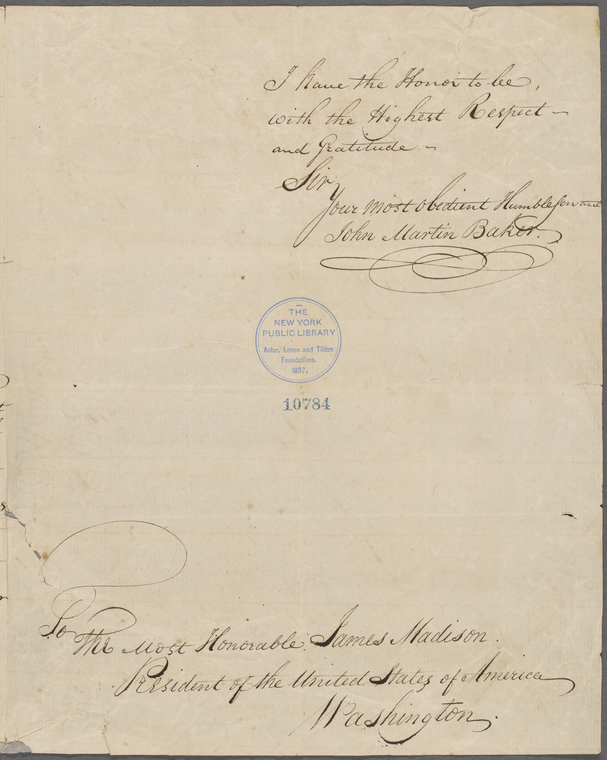 I have the Honor to be,
with the Highest Respect –
and Gratitude –
Sir,
Your most obedient Humble Servant
John Martin Baker.
THE
NEW YORK
PUBLIC LIBRARY
Astor, Lenox and Tilden
Foundations.
1897.
10784
To
The Most Honorable. James Madison.
President of the United States of America
Washington.